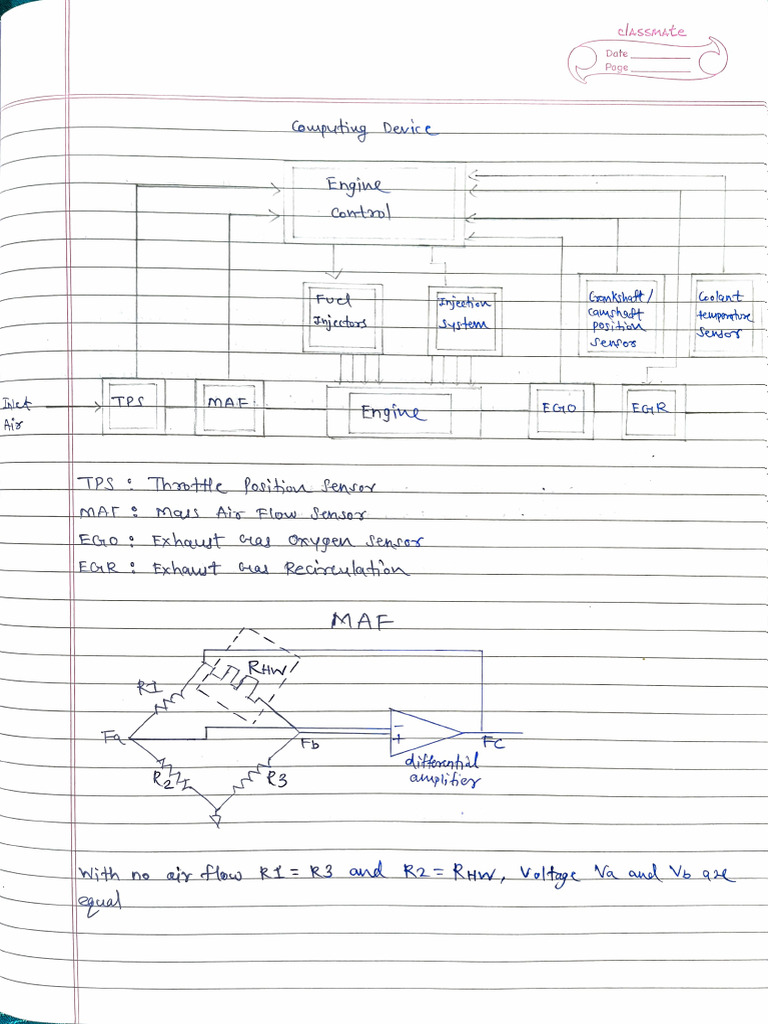 classmate
Date
Page
Computing Device
Engine
Control
Fuel
Injectors
Injection
System
Crankshaft /
camshaft
position
sensor
Coolant
temperature
sensor
Inlet
Air
TPS
MAF
Engine
EGO
EGR
TPS : Throttle Position Sensor
MAF : Mass Air Flow Sensor
EGO : Exhaust Gas Oxygen Sensor
EGR : Exhaust Gas Recirculation
MAF
RHW
R1
Fa
Fb
-
+
FC
differential
amplifier
R2
R3
With no air flow R1 = R3 and R2 = RHW, Voltage Va and Vb are
equal